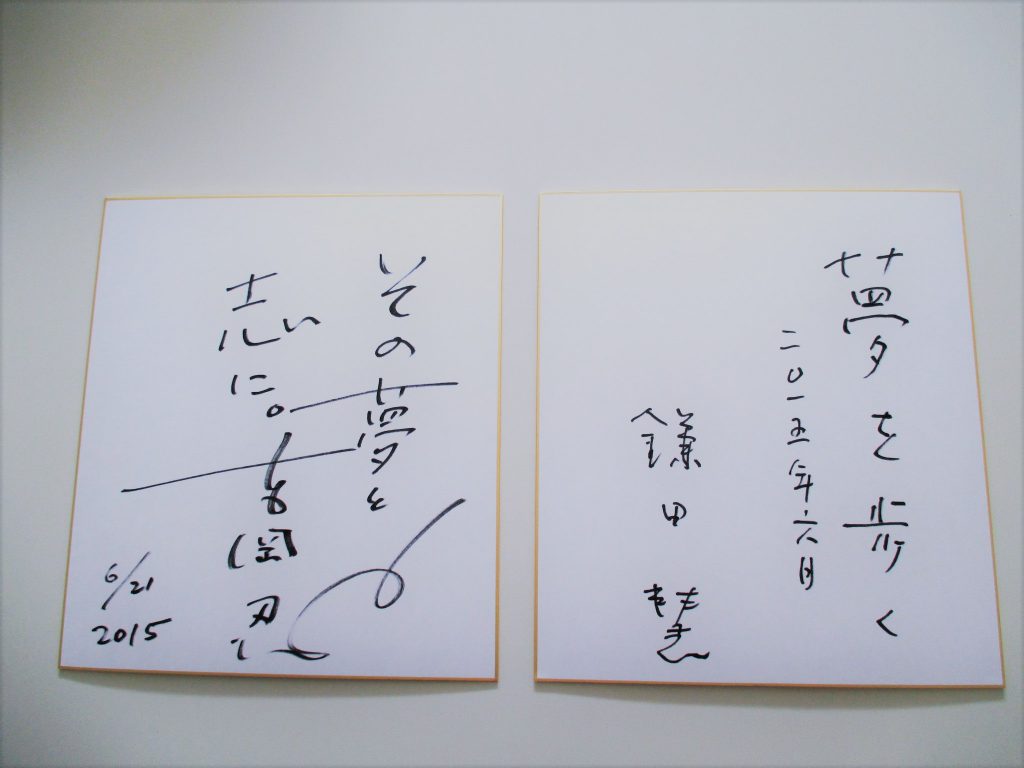 夢を歩く
二〇一五年六月
鎌田慧
その夢を
志に。
吉岡忍
6/21
2015